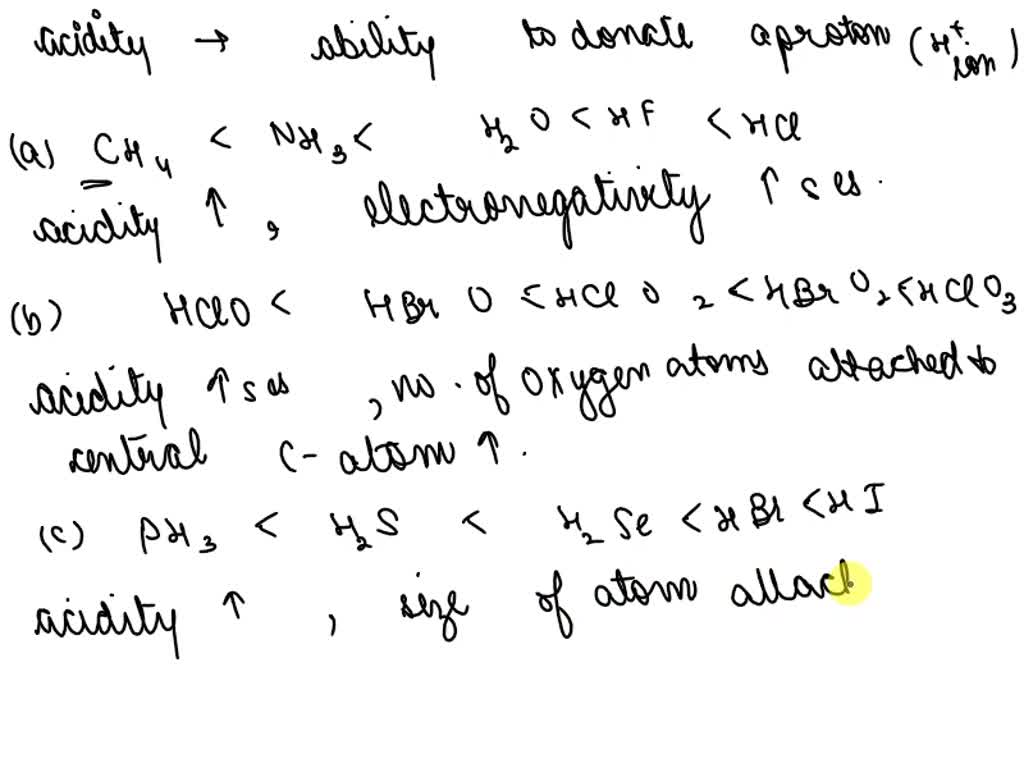 acidity → ability to donate a proton (H⁺ ion)
(a) CH₄ < NH₃ < H₂O < HF < HCl
acidity ↑, electronegativity ↑ses.
(b) HClO < HBrO < HClO₂ < HBrO₂ < HClO₃
acidity ↑ses, no. of oxygen atoms attached to
central C-atom ↑.
(c) PH₃ < H₂S < H₂Se < HBr < HI
acidity ↑, size of atom attach